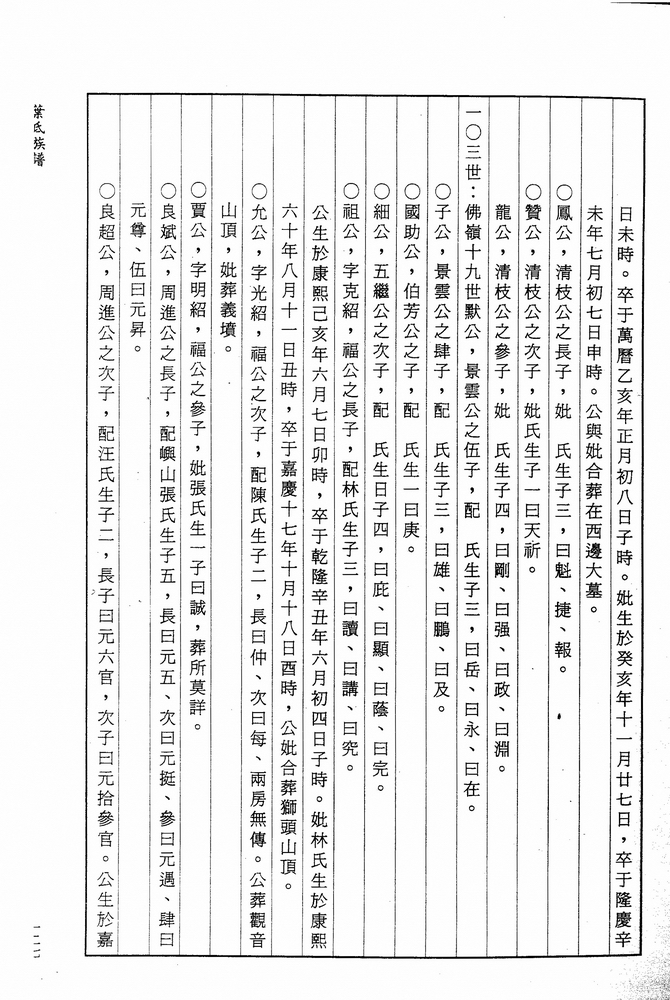 日未時。卒于萬曆乙亥年正月初八日子時。妣生於癸亥年十一月廿七日，卒于隆慶辛
未年七月初七日申時。公與妣合葬在西邊大墓。
○鳳公，清枝公之長子，妣　氏生子三，曰魁、捷、報。
○贊公，清枝公之次子，妣氏生子一曰天祈。
龍公，清枝公之參子，妣　氏生子四，曰剛、曰强、曰政、曰淵。
一○三世：佛嶺十九世默公，景雲公之伍子，配　氏生子三，曰岳、曰永、曰在。
○子公，景雲公之肆子，配　氏生子三，曰雄、曰鵬、曰及。
○國助公，伯芳公之子，配　氏生一曰庚。
○細公，五繼公之次子，配　氏生日子四，曰庇、曰顯、曰蔭、曰完。
○祖公，字克紹，福公之長子，配林氏生子三，曰讀、曰講、曰究。
公生於康熙己亥年六月七日卯時，卒于乾隆辛丑年六月初四日子時。妣林氏生於康熙
六十年八月十一日丑時，卒于嘉慶十七年十月十八日酉時，公妣合葬獅頭山頂。
○允公，字光紹，福公之次子，配陳氏生子二，長曰仲、次曰每、兩房無傳。公葬觀音
山頂，妣葬義墳。
○賈公，字明紹，福公之參子，妣張氏生一子曰誠，葬所莫詳。
○良斌公，周進公之長子，配嶼山張氏生子五，長曰元五、次曰元挺、參曰元遇、肆曰
元尊、伍曰元昇。
○良超公，周進公之次子，配汪氏生子二，長子曰元六官，次子曰元拾參官。公生於嘉
葉氏族譜